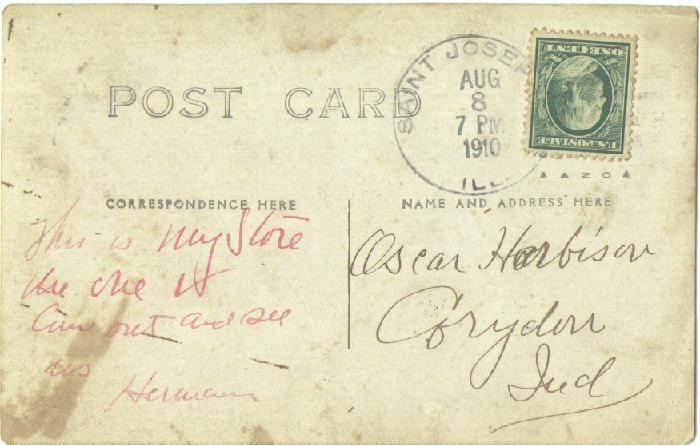 POST CARD
SAINT JOSEP
AUG
8
7 PM
1910
ILL.
U.S. POSTAGE
ONE CENT
AZO
CORRESPONDENCE HERE
NAME AND ADDRESS HERE
This is my Store
the one
Come out and see
us
Hermann
Oscar Harbison
Corydon
Ind